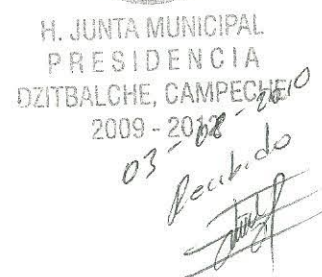 H. JUNTA MUNICIPAL
PRESIDENCIA
DZITBALCHE, CAMPECHE
2009 - 2012
03 - 08 - 2010
Recibido